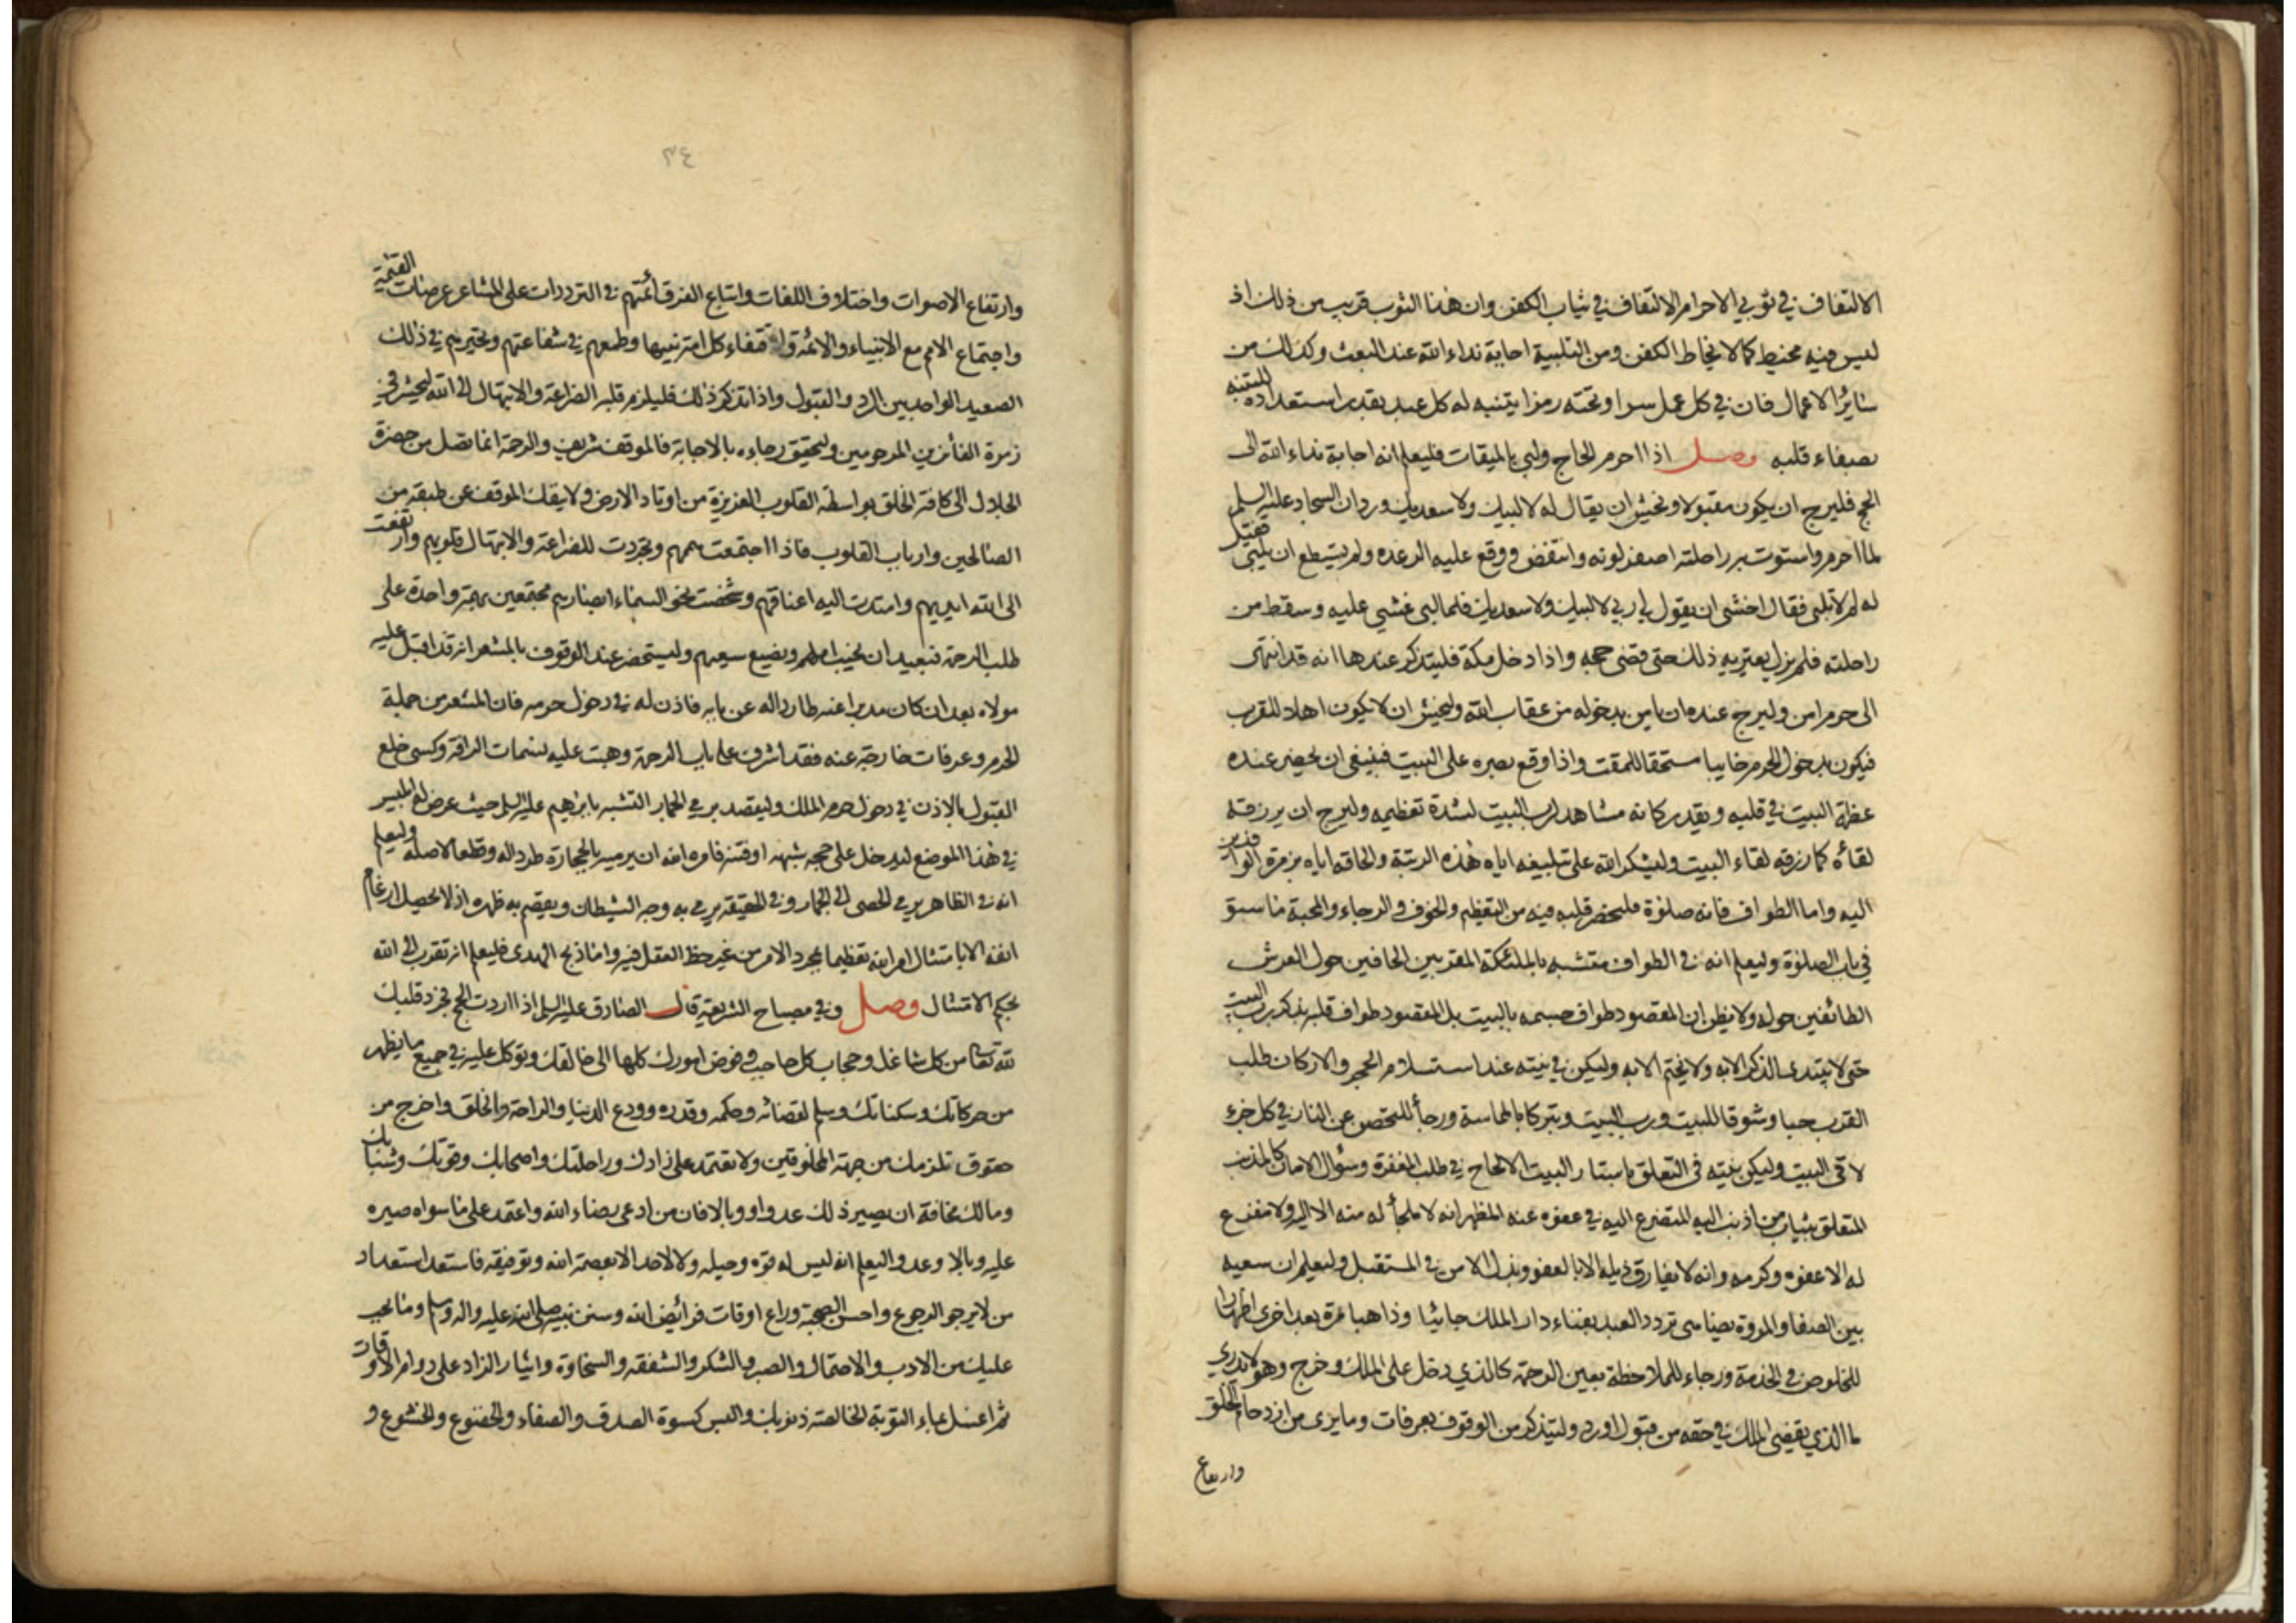 الالتفاف في ثوبي الاحرام الالتفاف في ثياب الكفن وان هذا الثوب قريب من ذلك اذ
ليس فيه مخيط كما لا يخاط الكفن ومن التلبية اجابة نداء الله عند البعث وكذلك من
سائر الاعمال فان في كل عمل سرا وتحته رمزا يتنبه له كل عبد بقدر استعداده للتنبه
بصفاء قلبه وصل اذا احرم الحاج ولبي بالميقات فليعلم انه اجابة نداء الله الى
الحج فليرج ان يكون مقبولا ويخش ان يقال له لا لبيك ولا سعديك وردان السجاد عليه السلم
لما احرم واستوت به راحلته اصفر لونه وانتفض ووقع عليه الرعده ولم يستطع ان يلبي فقيل
له لم لا تلبي فقال اخشى ان يقول لي ربي لا لبيك ولا سعديك فلما لبى غشي عليه وسقط من
راحلته فلم يزل يعتريه ذلك حتى قضى حجه واذا دخل مكة فليتذكر عندها انه قد انتهى
الى حرم امن وليرج عنده ان يامن بدخوله من عقاب الله وليخش ان لا يكون اهلا للقرب
فيكون بدخول الحرم خايبا مستحقا للمقت واذا وقع بصره على البيت فينبغي ان يحضر عنده
عظمة البيت في قلبه ويقدر كانه مشاهد لرب البيت لشدة تعظيمه وليرج ان يرزقه
لقاءه كما رزقه لقاء البيت وليشكر الله على تبليغه اياه هذه الرتبة والحاقه اياه بزمرة الوافدين
اليه واما الطواف فانه صلوة فليحضر قلبه فيه من التعظيم والخوف والرجاء والمحبة ما سبق
في باب الصلوة وليعلم انه في الطواف متشبه بالملئكة المقربين الحافين حول العرش
الطائفين حوله ولا يظن ان المقصود طواف جسمه بالبيت بل المقصود طواف قلبه بذكر رب البيت
حتى لا يبتدي الذكر الا به ولا يختم الا به وليكن في نيته عند استلام الحجر والاركان طلب
القرب حبا وشوقا للبيت ورب البيت وتبركا بالمماسة ورجأ للتحصن عن النار في كل جزء
لاقى البيت وليكن نيته في التعلق باستار البيت الالحاح في طلب المغفرة وسؤال الامان كالمذنب
المتعلق بثياب من اذنب اليه المتضرع اليه في عفوه عنه المظهر انه لا ملجأ له منه الا اليه ولا مفزع
له الا عفوه وكرمه وانه لا يفارق ذيله الا بالعفو وبذل الامن في المستقبل وليعلم ان سعيه
بين الصفا والمروة يضاهي تردد العبد بفناء دار الملك جائيا وذاهبا مرة بعد اخرى اظهارا
للخلوص في الخدمة ورجاء للملاحظة بعين الرحمة كالذي دخل على الملك وخرج وهو لا يدري
ما الذي يقضى الملك في حقه من قبول او رد وليتذكر من الوقوف بعرفات وما يرى من ازدحام الخلق
وارتفاع
٣٤
وارتفاع الاصوات واختلاف اللغات واتباع الفرق أئمتهم في الترددات على المشاعر عرصات القيمة
واجتماع الامم مع الانبياء والائمة واقتفاء كل امة نبيها وطمعهم في شفاعتهم وتحيرهم في ذلك
الصعيد الواحد بين الرد والقبول واذا تذكر ذلك فليلزم قلبه الضراعة والابتهال الى الله ليحشر في
زمرة الفائزين المرحومين وليحقق رجاءه بالاجابة فالموقف شريف والرحمة انما تصل من حضرة
الجلال الى كافة الخلق بواسطة القلوب العزيزة من اوتاد الارض ولا ينفك الموقف عن طبقة من
الصالحين وارباب القلوب فاذا اجتمعت هممهم وتجردت للضراعة والابتهال قلوبهم وارتفعت
الى الله ايديهم وامتدت اليه اعناقهم وشخصت نحو السماء ابصارهم مجتمعين بهمة واحدة على
طلب الرحمة فبعيد ان يخيب املهم ويضيع سعيهم وليستحضر عند الوقوف بالمشعر انه قد اقبل عليه
مولاه بعد ان كان مدبرا عنه طاردا له عن بابه فاذن له في دخول حرمه فان المشعر من جملة
الحرم وعرفات خارجة عنه فقد اشرف على باب الرحمة وهبت عليه نسمات الرافة وكسى خلع
القبول بالاذن في دخول حرم الملك وليقصد برمي الجمار التشبه بابراهيم عليه السلم حيث عرض له ابليس
في هذا الموضع ليدخل على حجه شبهة او فتنة فامره الله ان يرميه بالحجارة طردا له وقطعا لاصله وليعلم
انه في الظاهر يرمي الحصى الى الجمار وفي الحقيقة يرمي به وجه الشيطان ويقصم به ظهره اذ لا يحصل ارغام
انفه الا بامتثال امر الله تعظيما بمجرد الامر من غير حظ العقل فيه واما ذبح الهدى فليعلم انه تقرب الى الله
بحكم الامتثال وصل وفي مصباح الشريعة قال الصادق عليه السلم اذا اردت الحج فجرد قلبك
لله تعالى من كل شاغل وحجاب كل حاجب وفوض امورك كلها الى خالقك وتوكل عليه في جميع ما يظهر
من حركاتك وسكناتك وسلم لقضائه وحكمه وقدره وودع الدنيا والراحة والخلق واخرج من
حقوق تلزمك من جهة المخلوقين ولا تعتمد على زادك وراحلتك واصحابك وقوتك وشبابك
ومالك مخافة ان يصير ذلك عدوا ووبالا فان من ادعى رضاء الله واعتمد على ما سواه صيره
عليه وبالا وعدوا ليعلم انه ليس له قوة وحيلة ولا لاحد الا بعصمة الله وتوفيقه فاستعد استعداد
من لا يرجو الرجوع واحسن الصحبة وراع اوقات فرائض الله وسنن نبيه صلى الله عليه واله وسلم وما يجب
عليك من الادب والاحتمال والصبر والشكر والشفقة والسخاوة وايثار الزاد على دوام الاوقات
ثم اغسل بماء التوبة الخالصة ذنوبك والبس كسوة الصدق والصفاء والخضوع والخشوع و